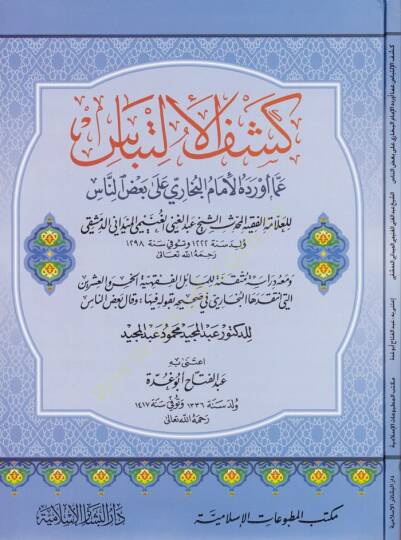 كشف الالتباس
عما أورده الإمام البخاري على بعض الناس
للعلامة الفقيه المحدث الشيخ عبد الغني الغنيمي الميداني الدمشقي
ولد سنة ١٢٢٢ وتوفي سنة ١٢٩٨
رحمه الله تعالى
ومعه دراسة متقنة للمسائل الفقهية الخمس والعشرين
التي انتقدها البخاري في صحيحه بقوله فيها: وقال بعض الناس
للدكتور عبد المجيد محمود عبد المجيد
اعتنى به
عبد الفتاح أبو غدة
ولد سنة ١٣٣٦ وتوفي سنة ١٤١٧
رحمه الله تعالى
مكتب المطبوعات الإسلامية
دار البشائر الإسلامية
كشف الالتباس عما أورده الإمام البخاري على بعض الناس
الشيخ عبد الغني الغنيمي الميداني الدمشقي
اعتنى به: عبد الفتاح أبو غدة
مكتب المطبوعات الإسلامية
دار البشائر الإسلامية